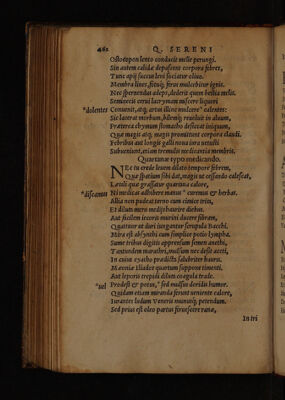 462 Q. SERENI
Osto epon lento conducit melle perungi.
Sin autem calidæ depascent corpora febres,
Tunc apij succus leni sociatur oliuo.
Membra lines, sitúq; feros mulcebitur ignis.
Nec spernendus adeps, dederit quem bellua melis.
Semineces cerui lacrymam miscere liquori
*dolentes Conuenit, atq; artus illine mulcere* calentes:
Sic laterat morbum, bilemq; reuoluit in aluum,
Præterea chymum stomacho deiectat iniquum,
Que magis atq; magis promittunt corpora claudi.
Febribus aut longis galli noua iura uetusti
Subueniunt, etiam tremulis medicantia membris.
Quartanæ typo medicando.
NEc tu crede leuem dilato tempore febrem,
Quæ spatium sibi dat, magis ut cessando calescat,
Latuli quæ grassatur quartana calore,
*discamus Ni medicas adhibere manus* curemus & herbas.
Allia non pudeat terno cum cimice trita,
Et diluta mero medijs haurire diebus.
Aut ficellem iecoris murini ducere fibram,
Quattuor ut duri iungantur scrupula Bacchi.
Mira est absynthi cum simplice potio lympha.
Sume tribus digitis apprensum semen anethi,
Tantundem marathri, mulsum nec desit aceti,
In cuius cyatho prædicta salubriter hauris.
Mæoniæ Iliados quartum suppone timenti.
Aut leporis trepidi dilues coagula trade.
*uel Prodest & potus,* sed nullus deridus humor.
Quidam etiam miranda ferunt ueniente calore,
Iurantes ludum Veneris munusq; petendum.
Sed prius est oleo partus feruescere rana,
In tri